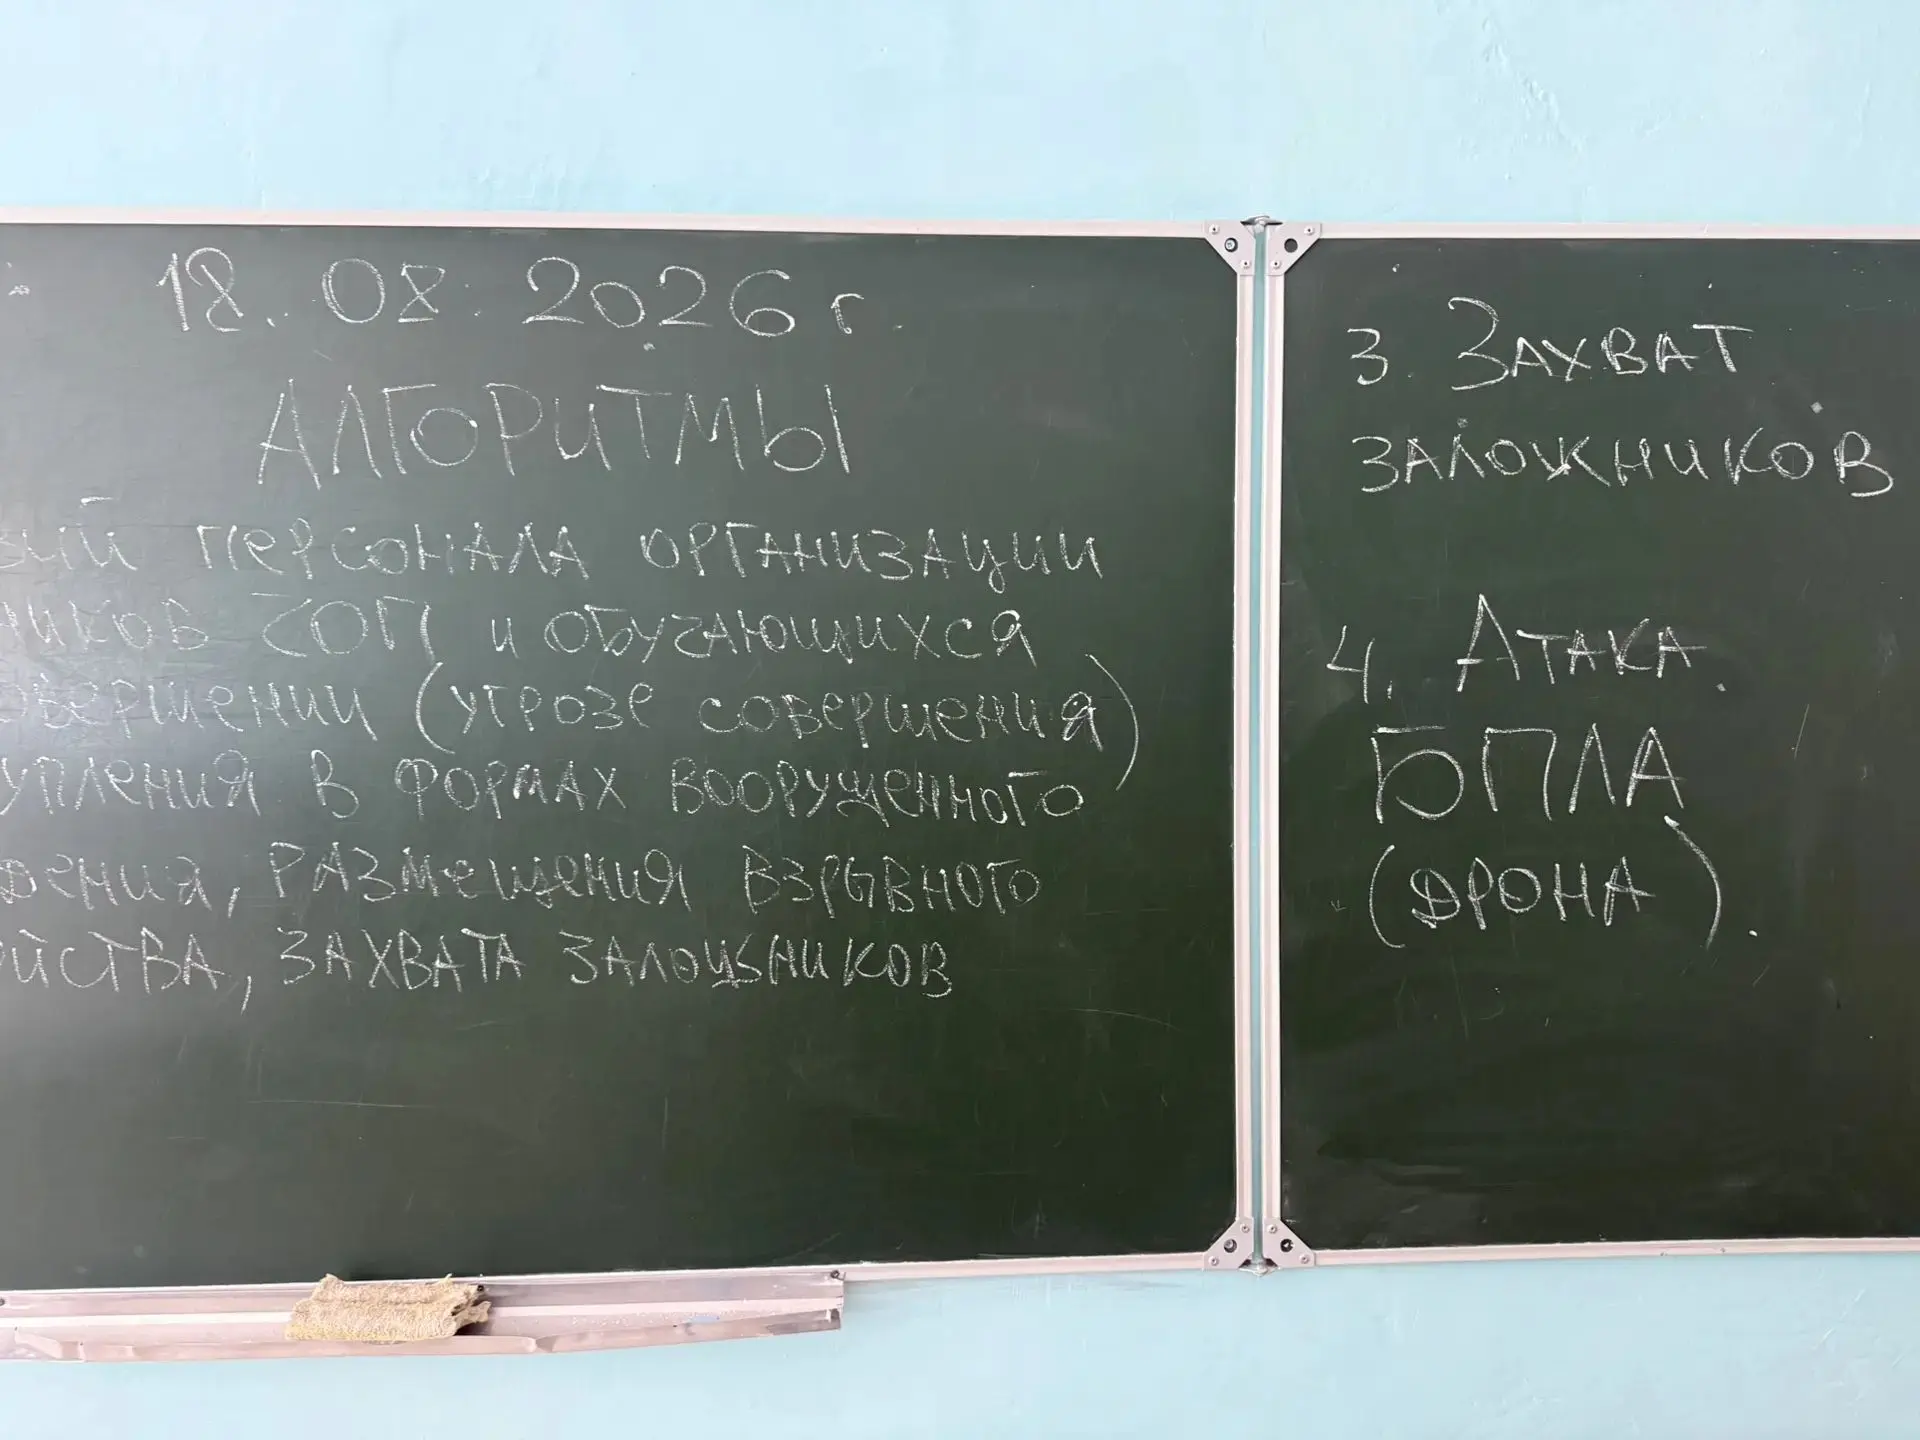 18.08.2026 г.
АЛГОРИТМЫ
вий ПЕРСОНАЛА ОРГАНИЗАЦИИ
НИКОВ ЧОП И ОБУЧАЮЩИХСЯ
ОВЕРШЕНИИ (УГРОЗЕ СОВЕРШЕНИЯ)
УПЛЕНИЯ В ФОРМАХ ВООРУЖЕННОГО
ДЕНИЯ, РАЗМЕЩЕНИЯ ВЗРЫВНОГО
ОЙСТВА, ЗАХВАТА ЗАЛОЖНИКОВ
3. ЗАХВАТ
ЗАЛОЖНИКОВ
4. АТАКА
БПЛА
(ДРОНА).